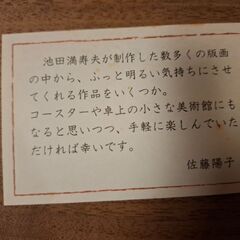 池田満寿夫が制作した数多くの版画
の中から、ふっと明るい気持ちにさせ
てくれる作品をいくつか。
コースターや卓上の小さな美術館にも
なると思いつつ、手軽に楽しんでいた
だければ幸いです。
佐藤陽子